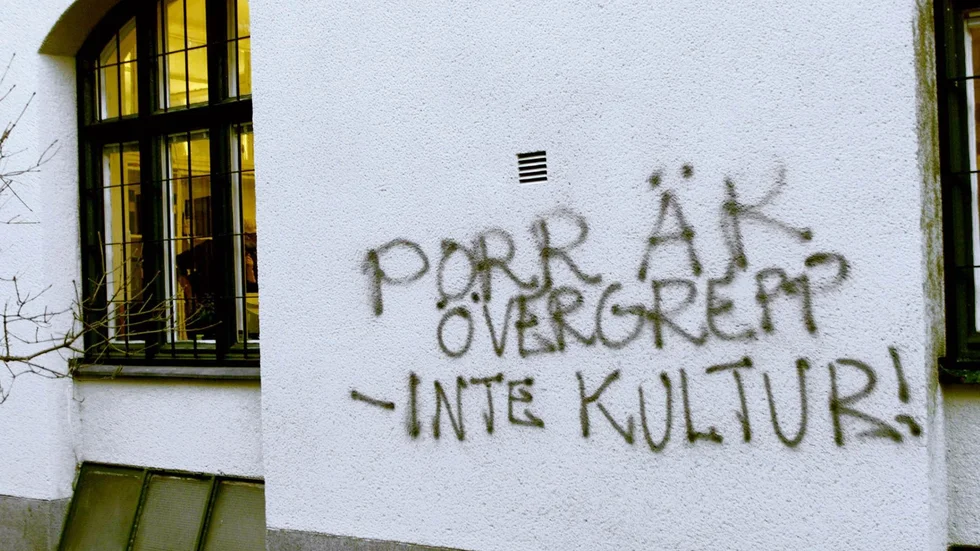 PORR ÄR
ÖVERGREPP
-INTE KULTUR!